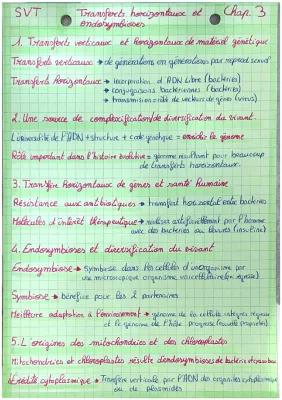 SVT Transferts horizontaux et Chap. 3
endosymbioses
1. Transferts verticaux et horizontaux de matériel génétique
Transferts verticaux → de générations en générations par reprod sexuel
Transferts Horizontaux → incorporation d'ADN Libre (bactéries)
→ conjugaisons bactériennes (bactéries)
→ transmission de vecteurs de gènes (virus)
2. Une source de complexification/de diversification du vivant.
Universalité de l'ADN + structure + code génétique = enrichir le génome
Rôle important dans l'histoire évolutive = génome resultant pour beaucoup
de transferts horizontaux.
3. Transfère Horizontaux de gènes et santé humaine
Résistance aux antibiotiques → transfert horizontal entre bactéries
Molécules d'interêt thérapeutique → réaliser artificiellement par l'homme
avec des bactéries ou levures (insuline)
4. Endosymbioses et diversification du vivant
Endosymbiose → Symbiose dans les cellules d'un organisme par
un microscopique organisme unicellulaire
Symbiose → bénéfice pour les 2 partenaires
Meilleure adaptation à l'environnement → génome de la cellule intégrée régresse
et le génome de l'hôte progresse
5. L'origines des mitochondries et des chloroplastes
Mitochondries et chloroplastes résulte d'endosymbioses de bactérie et
Hérédité cytoplasmique → Transfère verticale par l'ADN des organites cytoplasmique
ou de plasmides